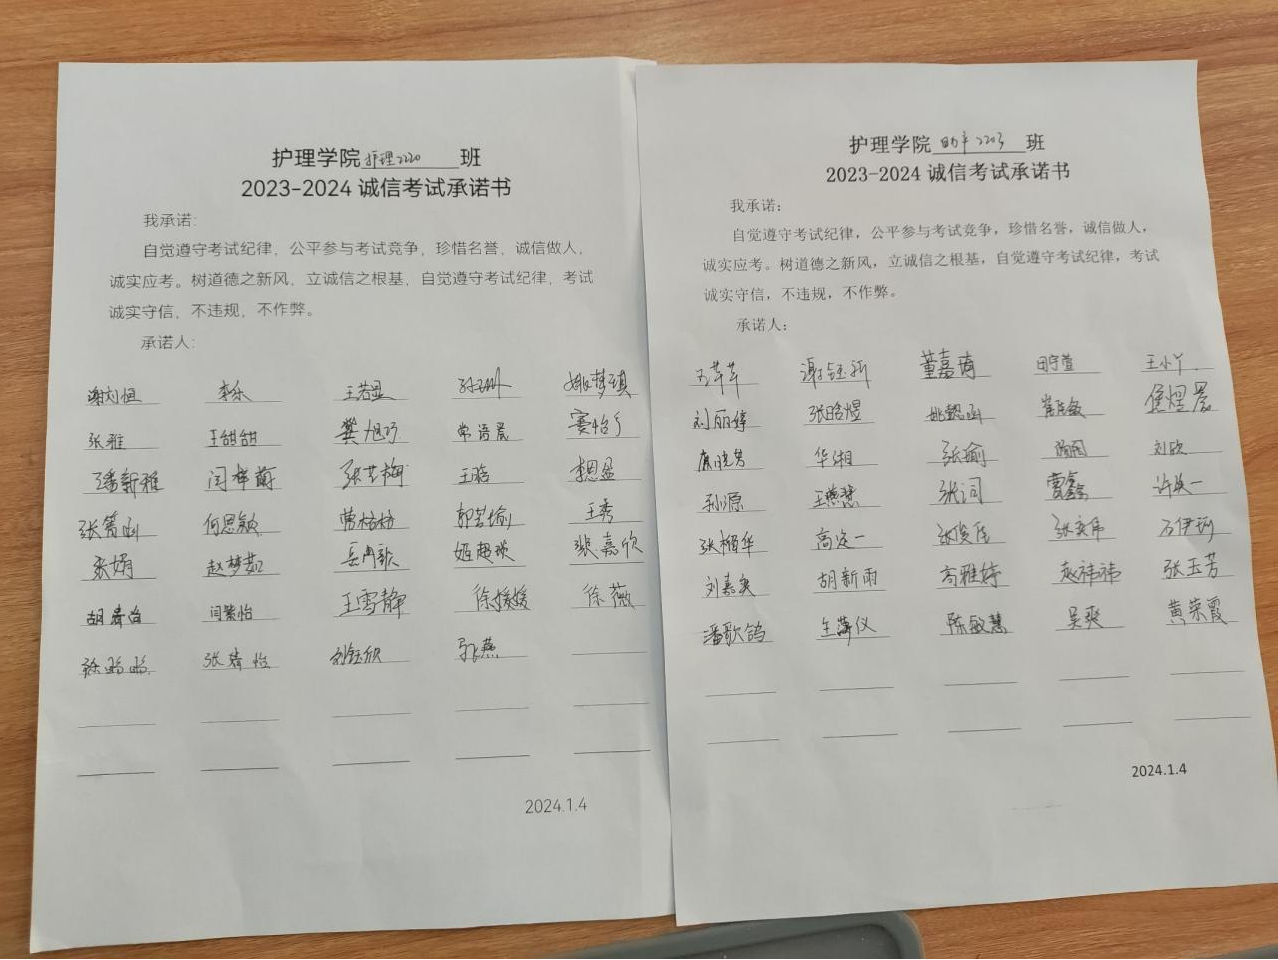 护理学院护理2220班
2023-2024 诚信考试承诺书
我承诺:
自觉遵守考试纪律, 公平参与考试竞争, 珍惜名誉, 诚信做人,
诚实应考。树道德之新风, 立诚信之根基, 自觉遵守考试纪律, 考试
诚实守信, 不违规, 不作弊。
承诺人:
谢刘恒 李乐 王若显
张雅 王甜甜 龚旭巧 常语晨 赛怡
潘新雅 闫梓萌 张芝梅 王晗 李恩盈
张箐函 何思颖 曹格格 郭若瑜 王秀
张娟 赵梦茹 岳冉歌 姬超琰 裴嘉欣
胡 闫繁怡 王雪静 徐媛媛 徐薇
徐鹏鹏 张婧怡 刘钰欣 张燕
2024.1.4
护理学院助产2203班
2023-2024 诚信考试承诺书
我承诺:
自觉遵守考试纪律, 公平参与考试竞争, 珍惜名誉, 诚信做人,
诚实应考。树道德之新风, 立诚信之根基, 自觉遵守考试纪律, 考试
诚实守信, 不违规, 不作弊。
承诺人:
王苹苹 谢钰新 董嘉琦 田宇萱 王小丫
刘丽婷 张晗煜 姚懿函 崔 堡煜晨
华湘 张瑜 刘欣
孙源 王燕慧 张词 曹鑫鑫 许共一
张楠华 高定一 张俊佳 张奕伟 石伊珂
刘嘉奕 胡新雨 高雅婷 赵祎祎 张玉芳
潘歌鸽 王萍仪 陈敏慧 吴爽 黄荣霞
2024.1.4